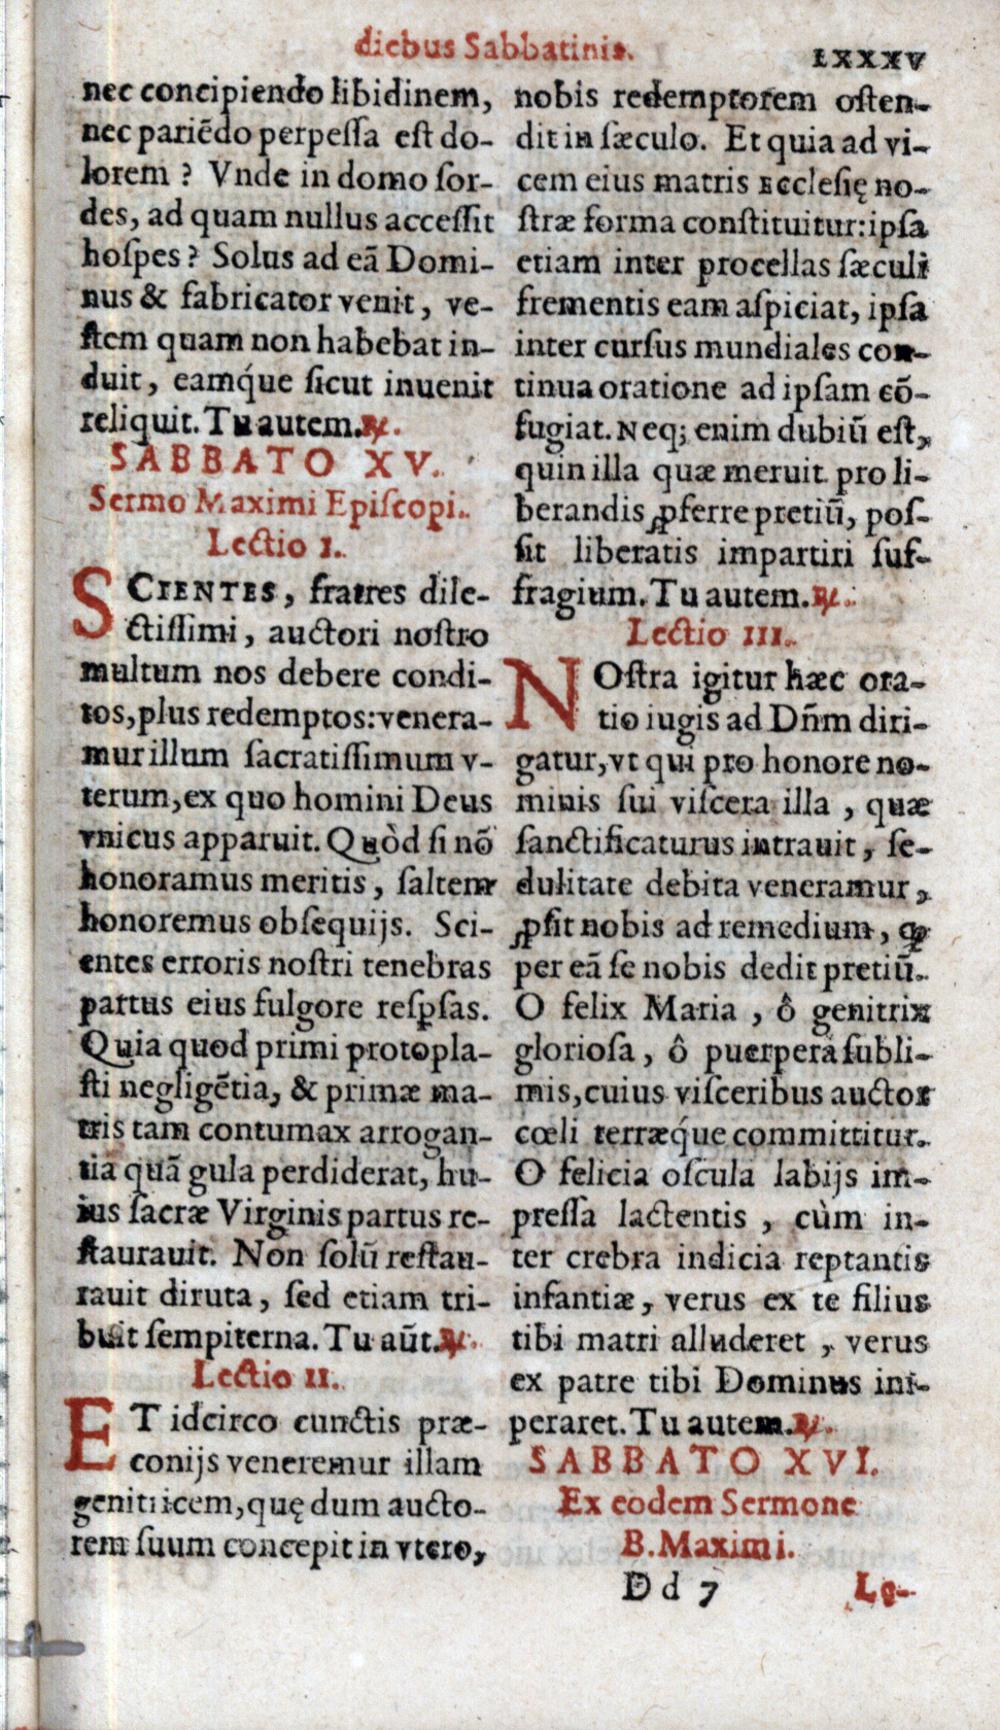 diebus Sabbatinis.
LXXXV
nec concipiendo libidinem,
nec pariẽdo perpeſſa eſt do-
lorem ? Vnde in domo ſor-
des, ad quam nullus acceſſit
hoſpes ? Solus ad eã Domi-
nus & fabricator venit, ve-
ſtem quam non habebat in-
duit, eamq́ue ſicut inuenit
reliquit. Tu autem.℟.
SABBATO XV.
Sermo Maximi Epiſcopi.
Lectio I.
SCIENTES, fratres dile-
ctiſſimi, auctori noſtro
multum nos debere condi-
tos, plus redemptos: venera-
mur illum ſacratiſſimum v-
terum, ex quo homini Deus
vnicus apparuit. Quòd ſi nõ
honoramus meritis, ſaltem
honoremus obſequijs. Sci-
entes erroris noſtri tenebras
partus eius fulgore reſꝑſas.
Quia quod primi protopla-
ſti negligẽtia, & primæ ma-
tris tam contumax arrogan-
tia quã gula perdiderat, hu-
ius ſacræ Virginis partus re-
ſtaurauit. Non ſolũ reſtau-
rauit diruta, ſed etiam tri-
buit ſempiterna. Tu aũt.℟.
Lectio II.
ET idcirco cunctis præ-
conijs veneremur illam
genitricem, quę dum aucto-
rem ſuum concepit in vtero,
nobis redemptorem oſten-
dit in ſæculo. Et quia ad vi-
cem eius matris Eccleſię no-
ſtræ forma conſtituitur: ipſa
etiam inter procellas ſæculi
frementis eam aſpiciat, ipſa
inter curſus mundiales con-
tinua oratione ad ipſam cõ-
fugiat. Neq; enim dubiũ eſt,
quin illa quæ meruit pro li-
berandis ꝓferre pretiũ, poſ-
ſit liberatis impartiri ſuf-
fragium. Tu autem.℟.
Lectio III.
NOſtra igitur hæc ora-
tio iugis ad Dñm diri-
gatur, vt qui pro honore no-
minis ſui viſcera illa, quæ
ſanctificaturus intrauit, ſe-
dulitate debita veneramur,
ꝓſit nobis ad remedium, ꝙ
per eã ſe nobis dedit pretiũ.
O felix Maria, ô genitrix
glorioſa, ô puerpera ſubli-
mis, cuius viſceribus auctor
cœli terræq́ue committitur.
O felicia oſcula labijs im-
preſſa lactentis, cùm in-
ter crebra indicia reptantis
infantiæ, verus ex te filius
tibi matri alluderet, verus
ex patre tibi Dominus im-
peraret. Tu autem.℟.
SABBATO XVI.
Ex eodem Sermone
B. Maximi.
Dd 7
Le-